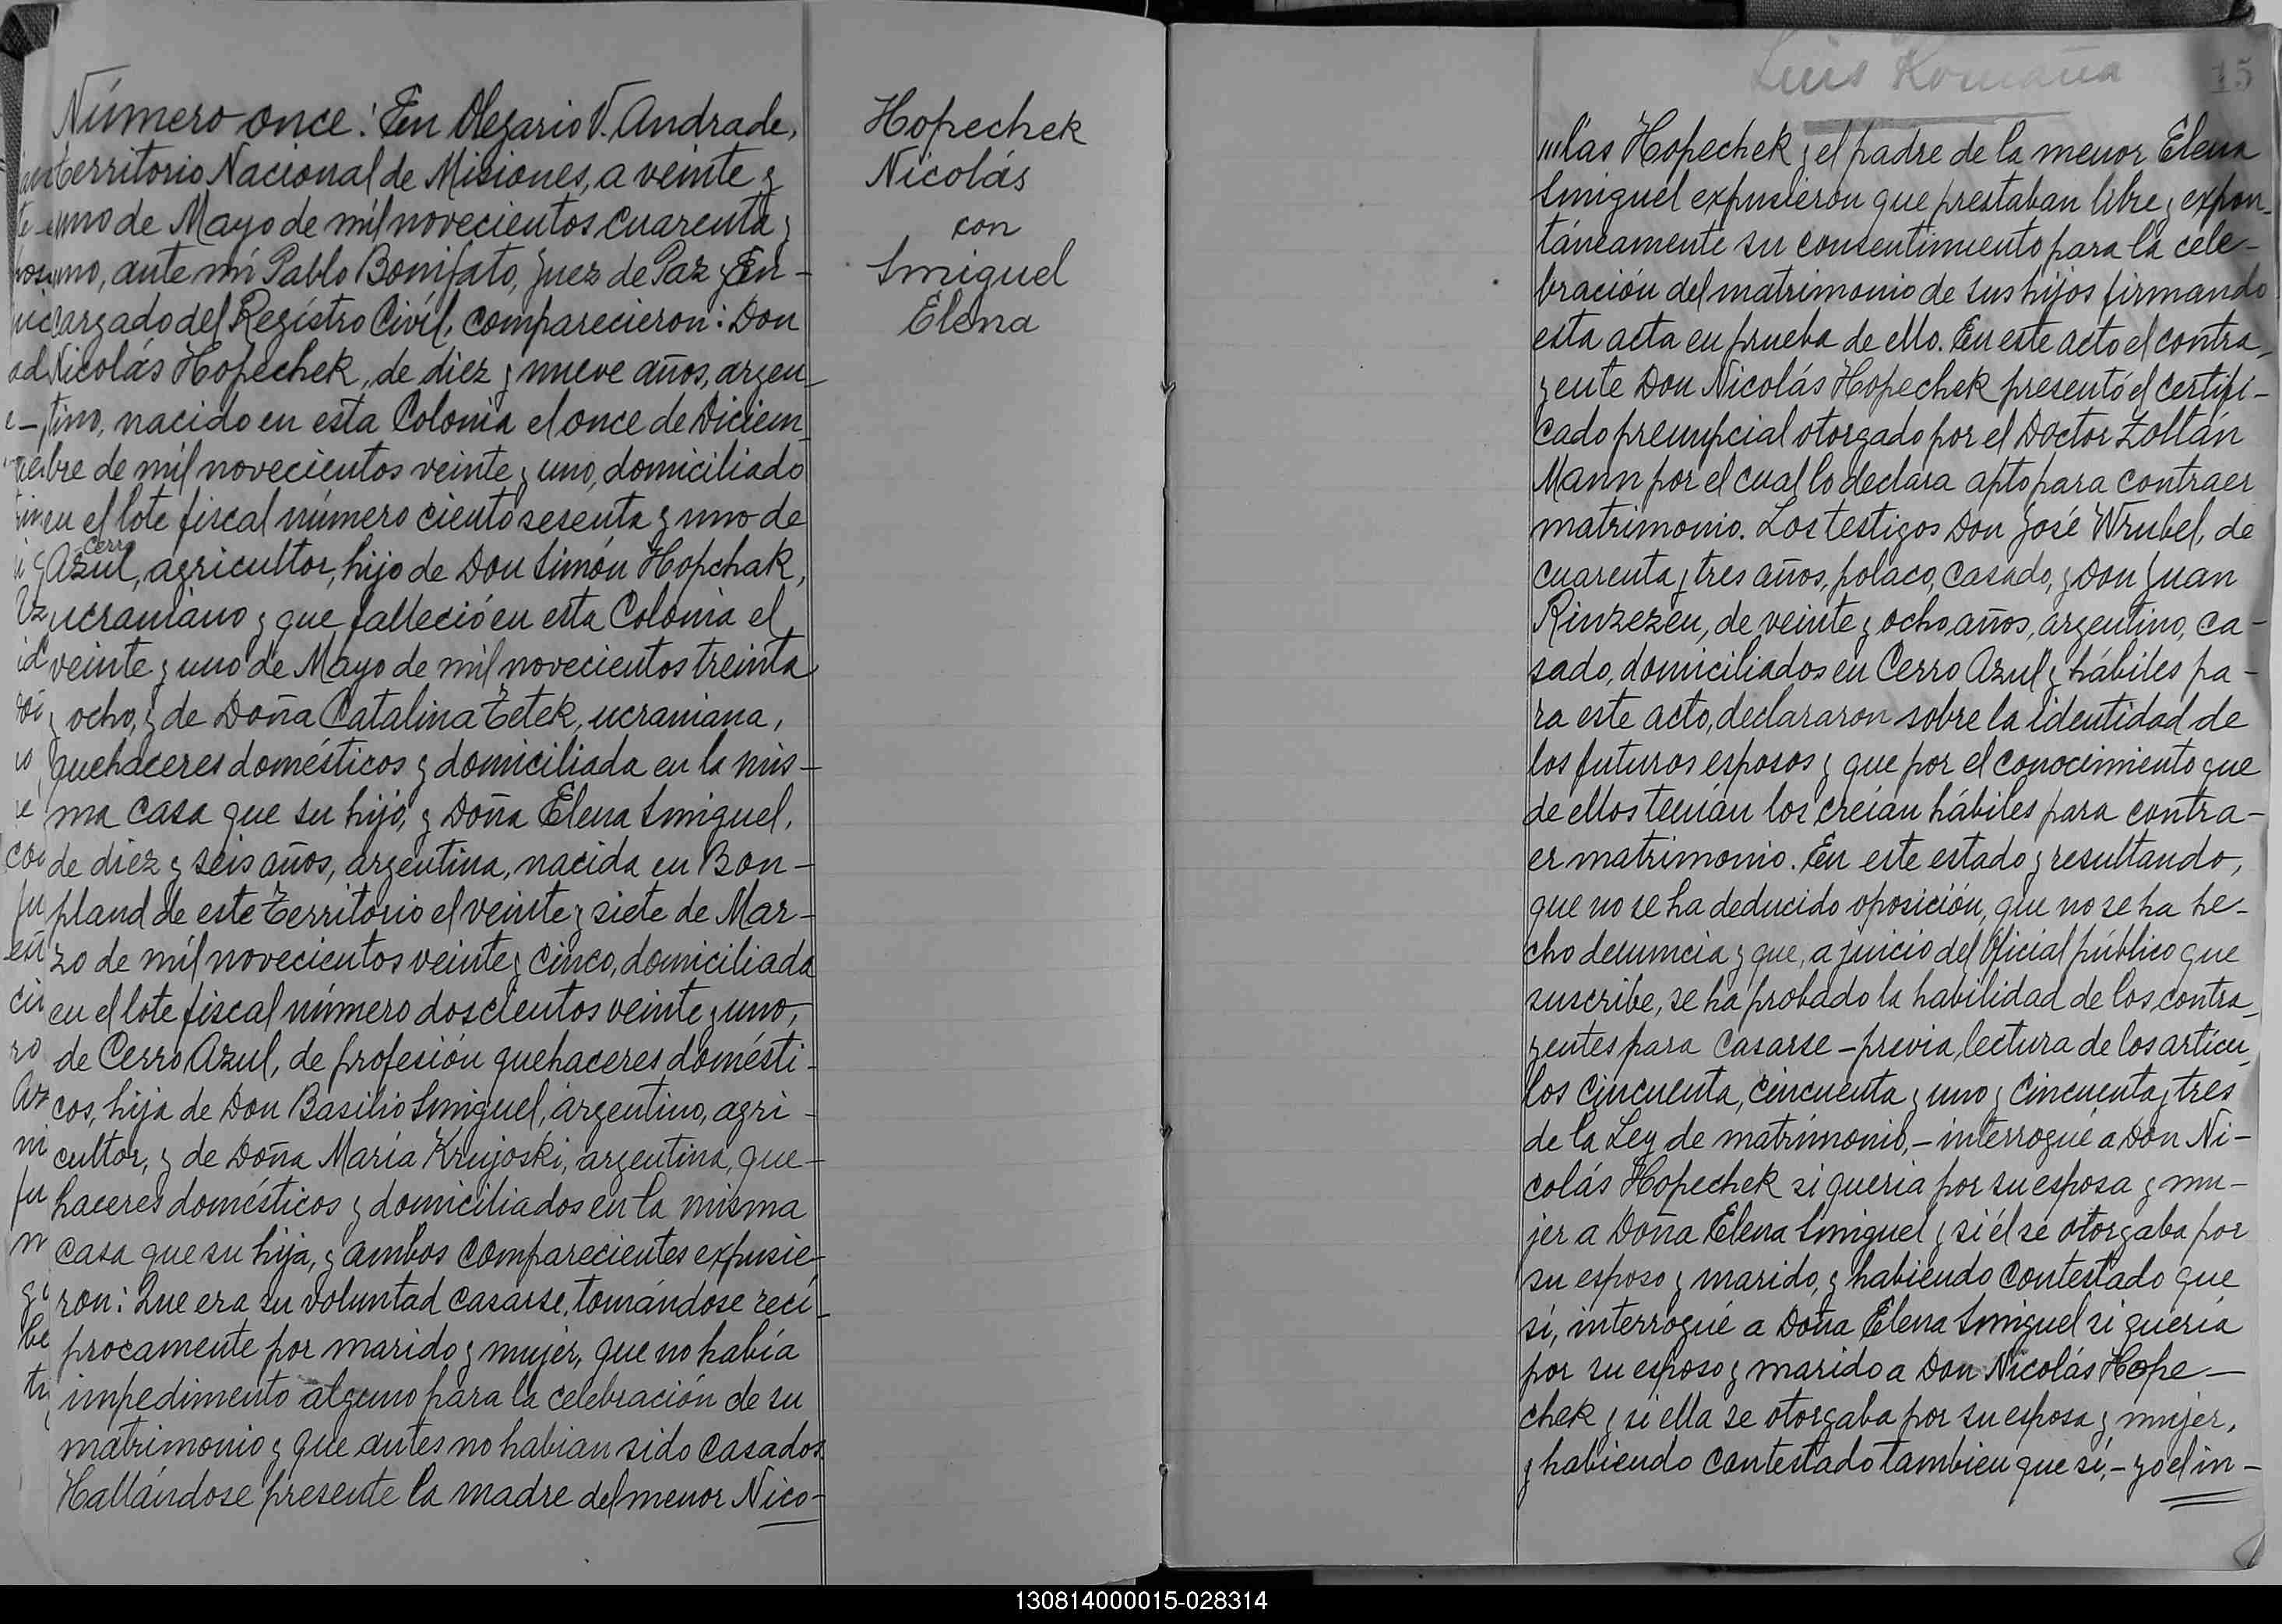 Número once: En Olegario V. Andrade,
territorio Nacional de Misiones, a veinte y
uno de Mayo de mil novecientos cuarenta y
uno, ante mí Pablo Bonifato, Juez de Paz y En-
cargado del Regístro Civíl, comparecieron: Don
Nicolás Hopechek, de diez y nueve años, argen-
tino, nacido en esta Colonia el once de Diciem-
bre de mil novecientos veinte y uno, domiciliado
en el lote fiscal número ciento sesenta y uno de
Cerro
Azul, agricultor, hijo de Don Simón Hopchak,
ucraniano y que falleció en esta Colonia el
veinte y uno de Mayo de mil novecientos treinta
y ocho, y de Doña Catalina Tetek, ucraniana,
quehaceres domésticos y domiciliada en la mis-
ma casa que su hijo, y Doña Elena Smiguel,
de diez y seis años, argentina, nacida en Bon-
pland de este Territorio el veinte y siete de Mar-
zo de mil novecientos veinte y cinco, domiciliada
en el lote fiscal número doscientos veinte y uno,
de Cerro Azul, de profesión quehaceres domésti-
cos, hija de Don Basilio Smiguel, argentino, agri-
cultor, y de Doña María Krujoski, argentina, que-
haceres domésticos y domiciliados en la misma
casa que su hija, y ambos comparecientes expusie-
ron: Que era su voluntad casarse, tomándose recí-
procamente por marido y mujer, que no había
impedimento alguno para la celebración de su
matrimonio y que antes no habian sido casados.
Hallándose presente la madre del menor Nico-
Hopechek
Nicolás
con
Smiguel
Elena
Luis Romaña
15
"'las Hopechek y el padre de la menor Elena
Smiguel expusieron que prestaban libre y expon-
táneamente su consentimiento para la cele-
bración del matrimonio de sus hijos firmando
esta acta en prueba de ello. En este acto el contra-
yente Don Nicolás Hopechek presentó el certifi-
cado prenupcial otorgado por el Doctor Zoltán
Mann por el cual lo declara apto para contraer
matrimonio. Los testigos Don José Wrubel, de
cuarenta y tres años, polaco, casado, y Don Juan
Rinzezen, de veinte y ocho años, argentino, ca-
sado, domiciliados en Cerro Azul y hábiles pa-
ra este acto, declararon sobre la identidad de
los futuros esposos y que por el conocimiento que
de ellos tenían los creían hábiles para contra-
er matrimonio. En este estado y resultando,
que no se ha deducido oposición, que no se ha he-
cho denuncia y que, a juicio del Oficial público que
suscribe, se ha probado la habilidad de los contra-
yentes para casarse - previa lectura de los artícu-
los cincuenta, cincuenta y uno y cincuenta y tres
de la Ley de matrimonio, - interrogué a Don Ni-
colás Hopechek si queria por su esposa y mu-
jer a Doña Elena Smiguel y si él se otorgaba por
su esposo y marido, y habiendo contestado que
sí, interrogué a Doña Elena Smiguel si quería
por su esposo y marido a Don Nicolás Hope-
chek y si ella se otorgaba por su esposa y mujer,
y habiendo contestado tambien que sí, - yo el in-
130814000015-028314